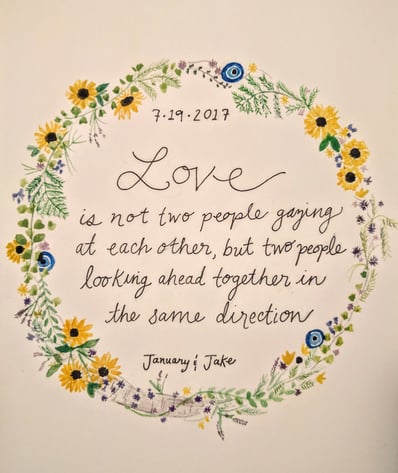 7·19·2017
Love
is not two people gazing
at each other, but two people
looking ahead together in
the same direction
January & Jake